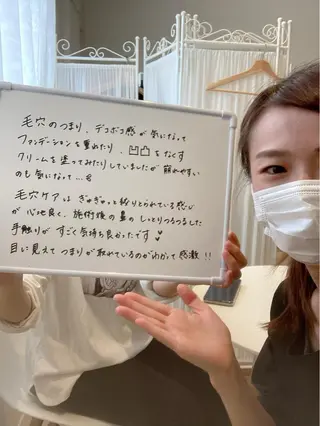 毛穴のつまり、デコボコ感が気になって
ファンデーションを重ねたり、凹凸をなくす
クリームを塗ってみたりしていましたが崩れやすい
のも気になって…
毛穴ケアは ぎゅぎゅっと絞りとられている感じ
が心地良く、施術後の鼻のしっとりつるつるした
手触りが すごく気持ち良かったです
目に見えて つまりが取れているのがわかって感激!!